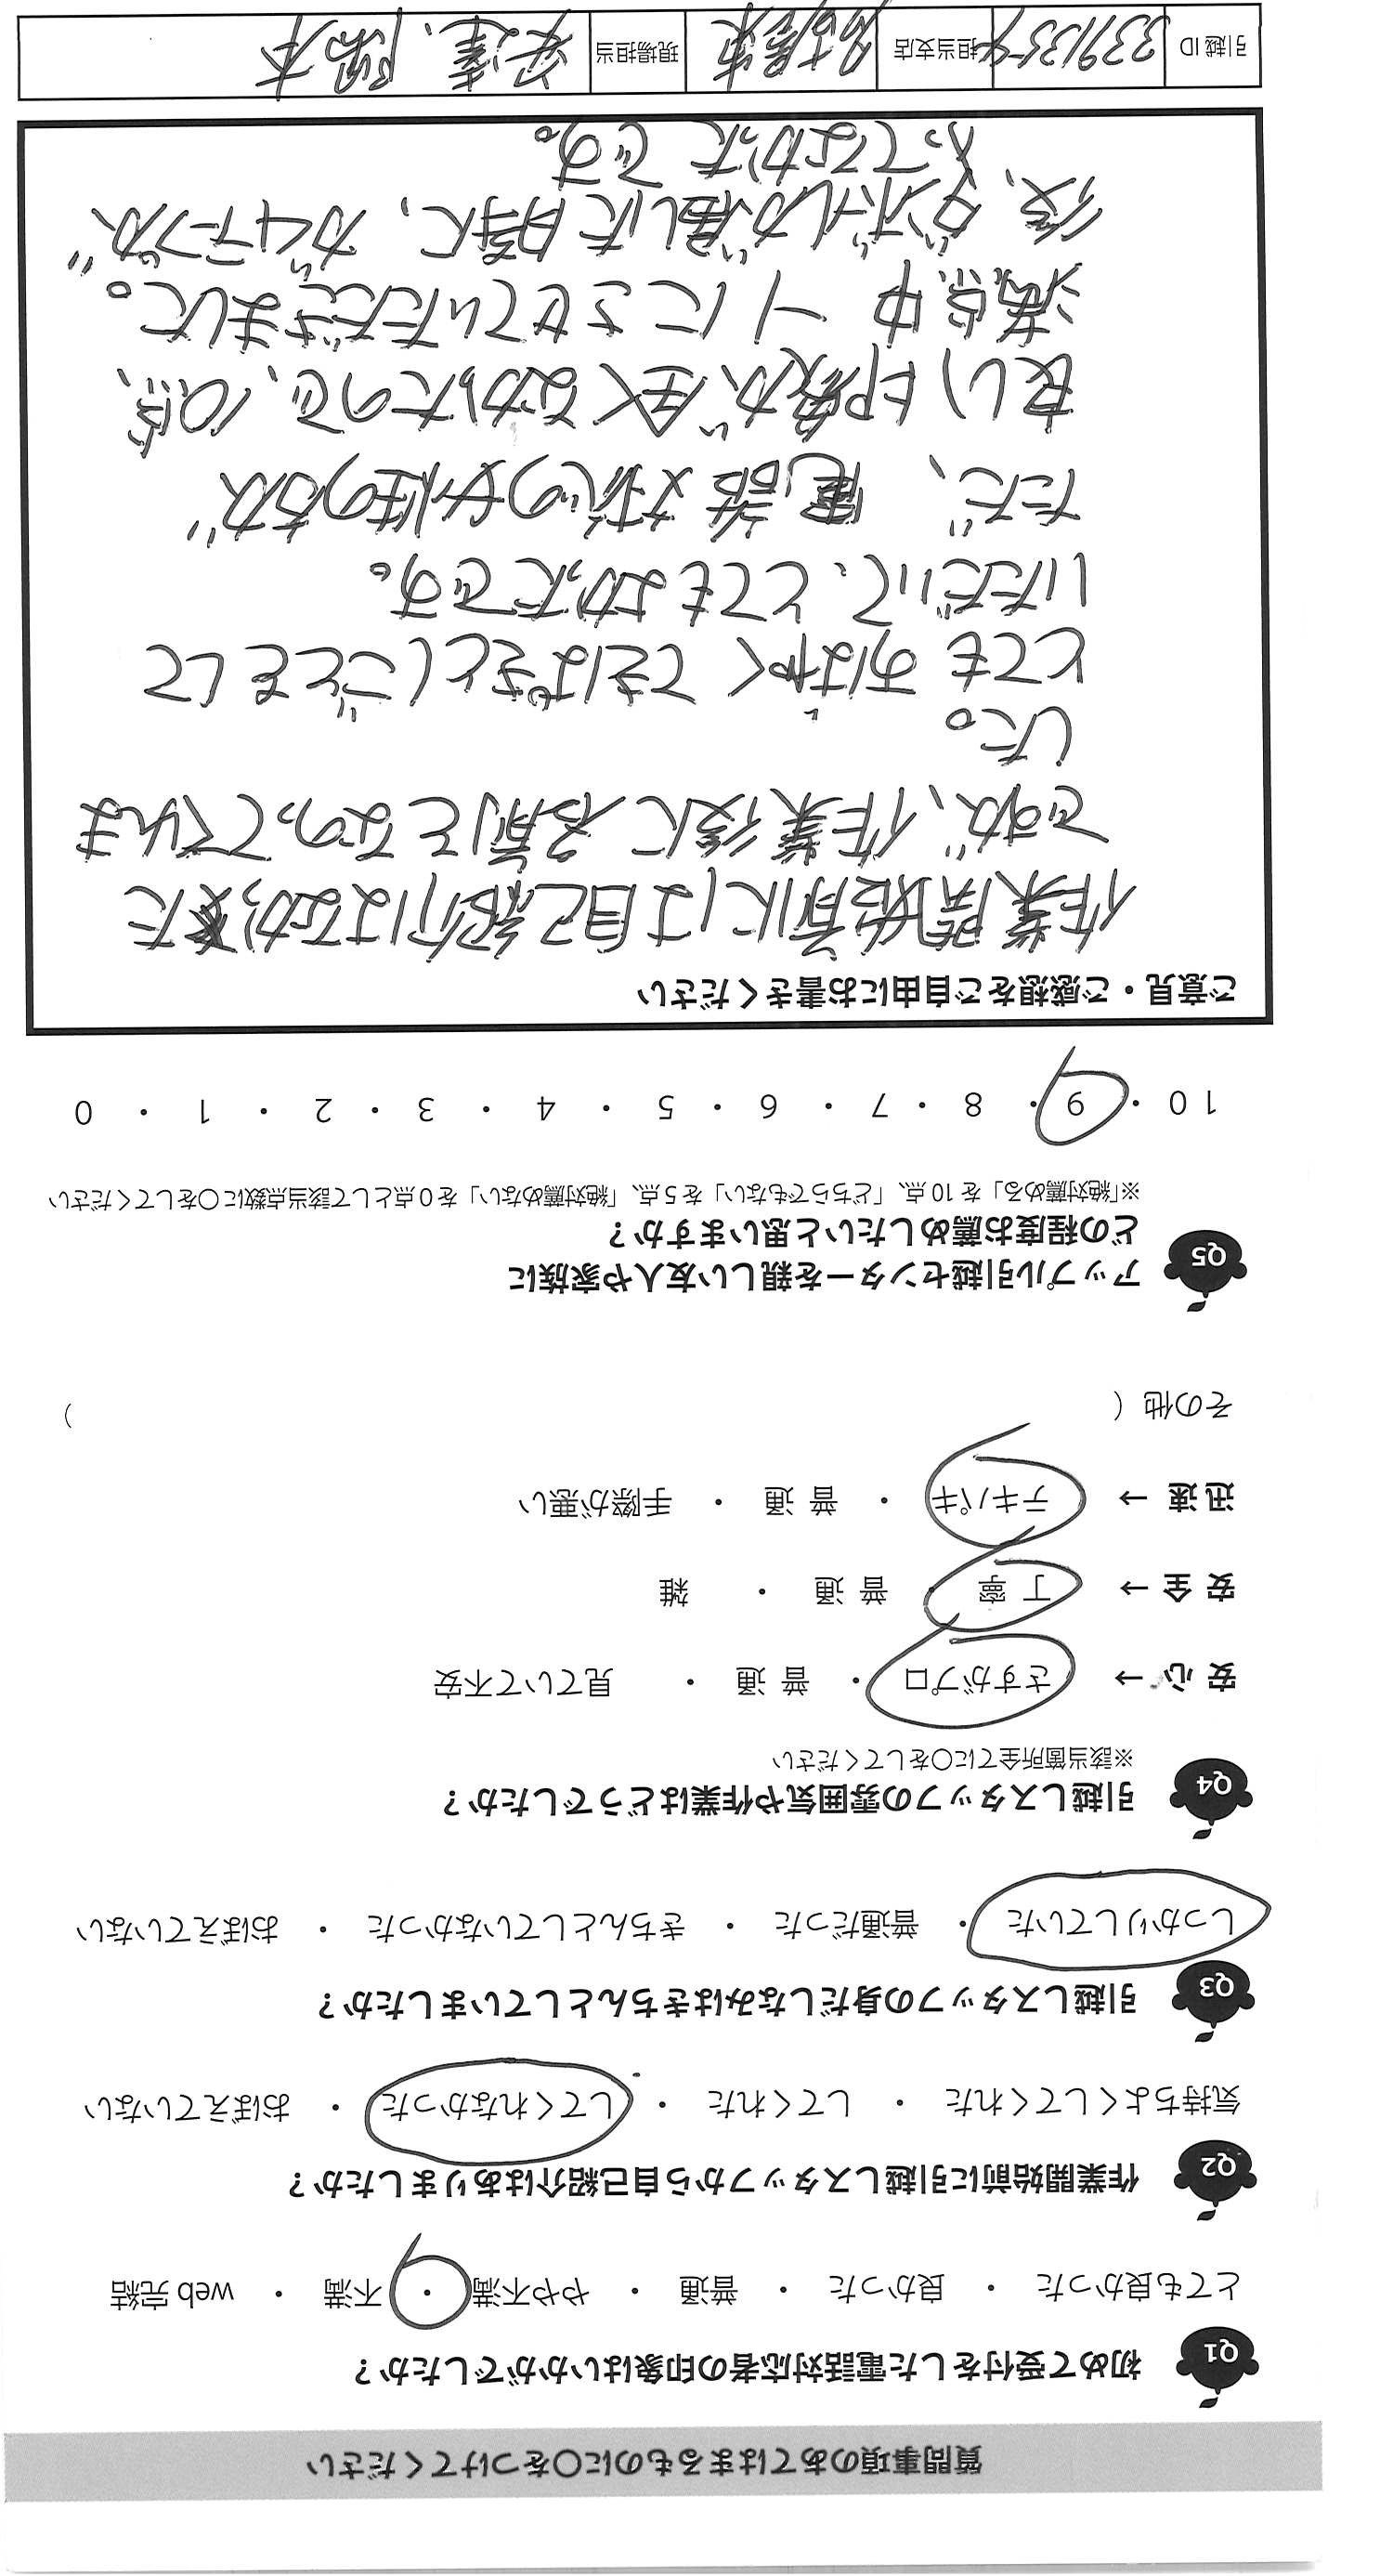 質問事項のあてはまるものに〇をつけてください
Q1 初めて受付をした電話対応者の印象はいかがでしたか？
とても良かった ・ 良かった ・ 普通 ・ やや不満 ・ 不満 ・ web 完結
Q2 作業開始前に引越しスタッフから自己紹介はありましたか？
気持ちよくしてくれた ・ してくれた ・ してくれなかった ・ おぼえていない
Q3 引越しスタッフの身だしなみはきちんとしていましたか？
しっかりしていた ・ 普通だった ・ きちんとしていなかった ・ おぼえていない
Q4 引越しスタッフの雰囲気や作業はどうでしたか？
※該当箇所全てに〇をしてください
安 心 → さすがプロ ・ 普 通 ・ 見ていて不安
安 全 → 丁 寧 ・ 普 通 ・ 雑
迅 速 → テキパキ ・ 普 通 ・ 手際が悪い
その他（ ）
Q5 アップル引越センターを親しい友人や家族に
どの程度お薦めしたいと思いますか？
※「絶対薦める」を 10 点、「どちらでもない」を 5 点、「絶対薦めない」を 0 点として該当点数に〇をしてください
10 ・ 9 ・ 8 ・ 7 ・ 6 ・ 5 ・ 4 ・ 3 ・ 2 ・ 1 ・ 0
ご意見・ご感想をご自由にお書きください
作業開始前には自己紹介はなかった
ですが、作業後に名前をなのってくれま
した。
とても すばやく てきぱきとしごとをして
いただいて、とてもよかったです。
ただ、電話対応の女性の方が
良い印象が全くなかったので、10点
満点中 -1にさせていただきました。
後、ダンボールが届いた時に、ガムテープが
入ってなかったです。
引越ID 33913554 担当支店 現場担当 安達、陽本